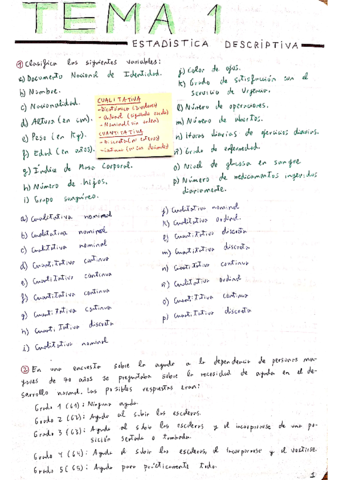 TEMA 1
ESTADÍSTICA DESCRIPTIVA
① Clasifica las siguientes variables:
a) Documento Nacional de Identidad.
b) Nombre.
c) Nacionalidad.
d) Altura (en cm).
e) Peso (en Kg).
f) Edad (en años).
g) Índice de Masa Corporal.
h) Número de hijos.
i) Grupo sanguíneo.
CUALITATIVA
CUANTITATIVA
j) Color de ojos.
k) Grado de satisfacción con el
servicio de Urgencias.
l) Número de operaciones.
m) Número de abortos.
n) Horas diarias de ejercicios diarios.
ñ) Grado de enfermedad.
o) Nivel de glucosa en sangre
p) Número de medicamentos ingeridos
diariamente.
a) Cualitativa nominal
b) Cualitativa nominal
c) Cualitativa nominal
d) Cuantitativa continua
e) Cuantitativa continua
f) Cuantitativa continua
g) Cuantitativa continua
h) Cuantitativa discreta
i) Cualitativa nominal
j) Cualitativa nominal
k) Cualitativa ordinal.
l) Cuantitativa discreta
m) Cuantitativa discreta
n) Cuantitativa continua
ñ) Cualitativa ordinal
o) Cuantitativa continua
p) Cuantitativa discreta
② En una encuesta sobre la ayuda a la dependencia de personas ma-
yores de 70 años se preguntaba sobre la necesidad de ayuda en el de-
sarrollo normal. Las posibles respuestas eran:
Grado 1 (G1): Ninguna ayuda.
Grado 2 (G2): Ayuda al subir las escaleras.
Grado 3 (G3): Ayuda al subir las escaleras y al incorporarse de una po-
sición sentada o tumbada.
Grado 4 (G4): Ayuda al subir las escaleras, al incorporarse y al vestirse.
Grado 5 (G5): Ayuda para prácticamente todo.
1